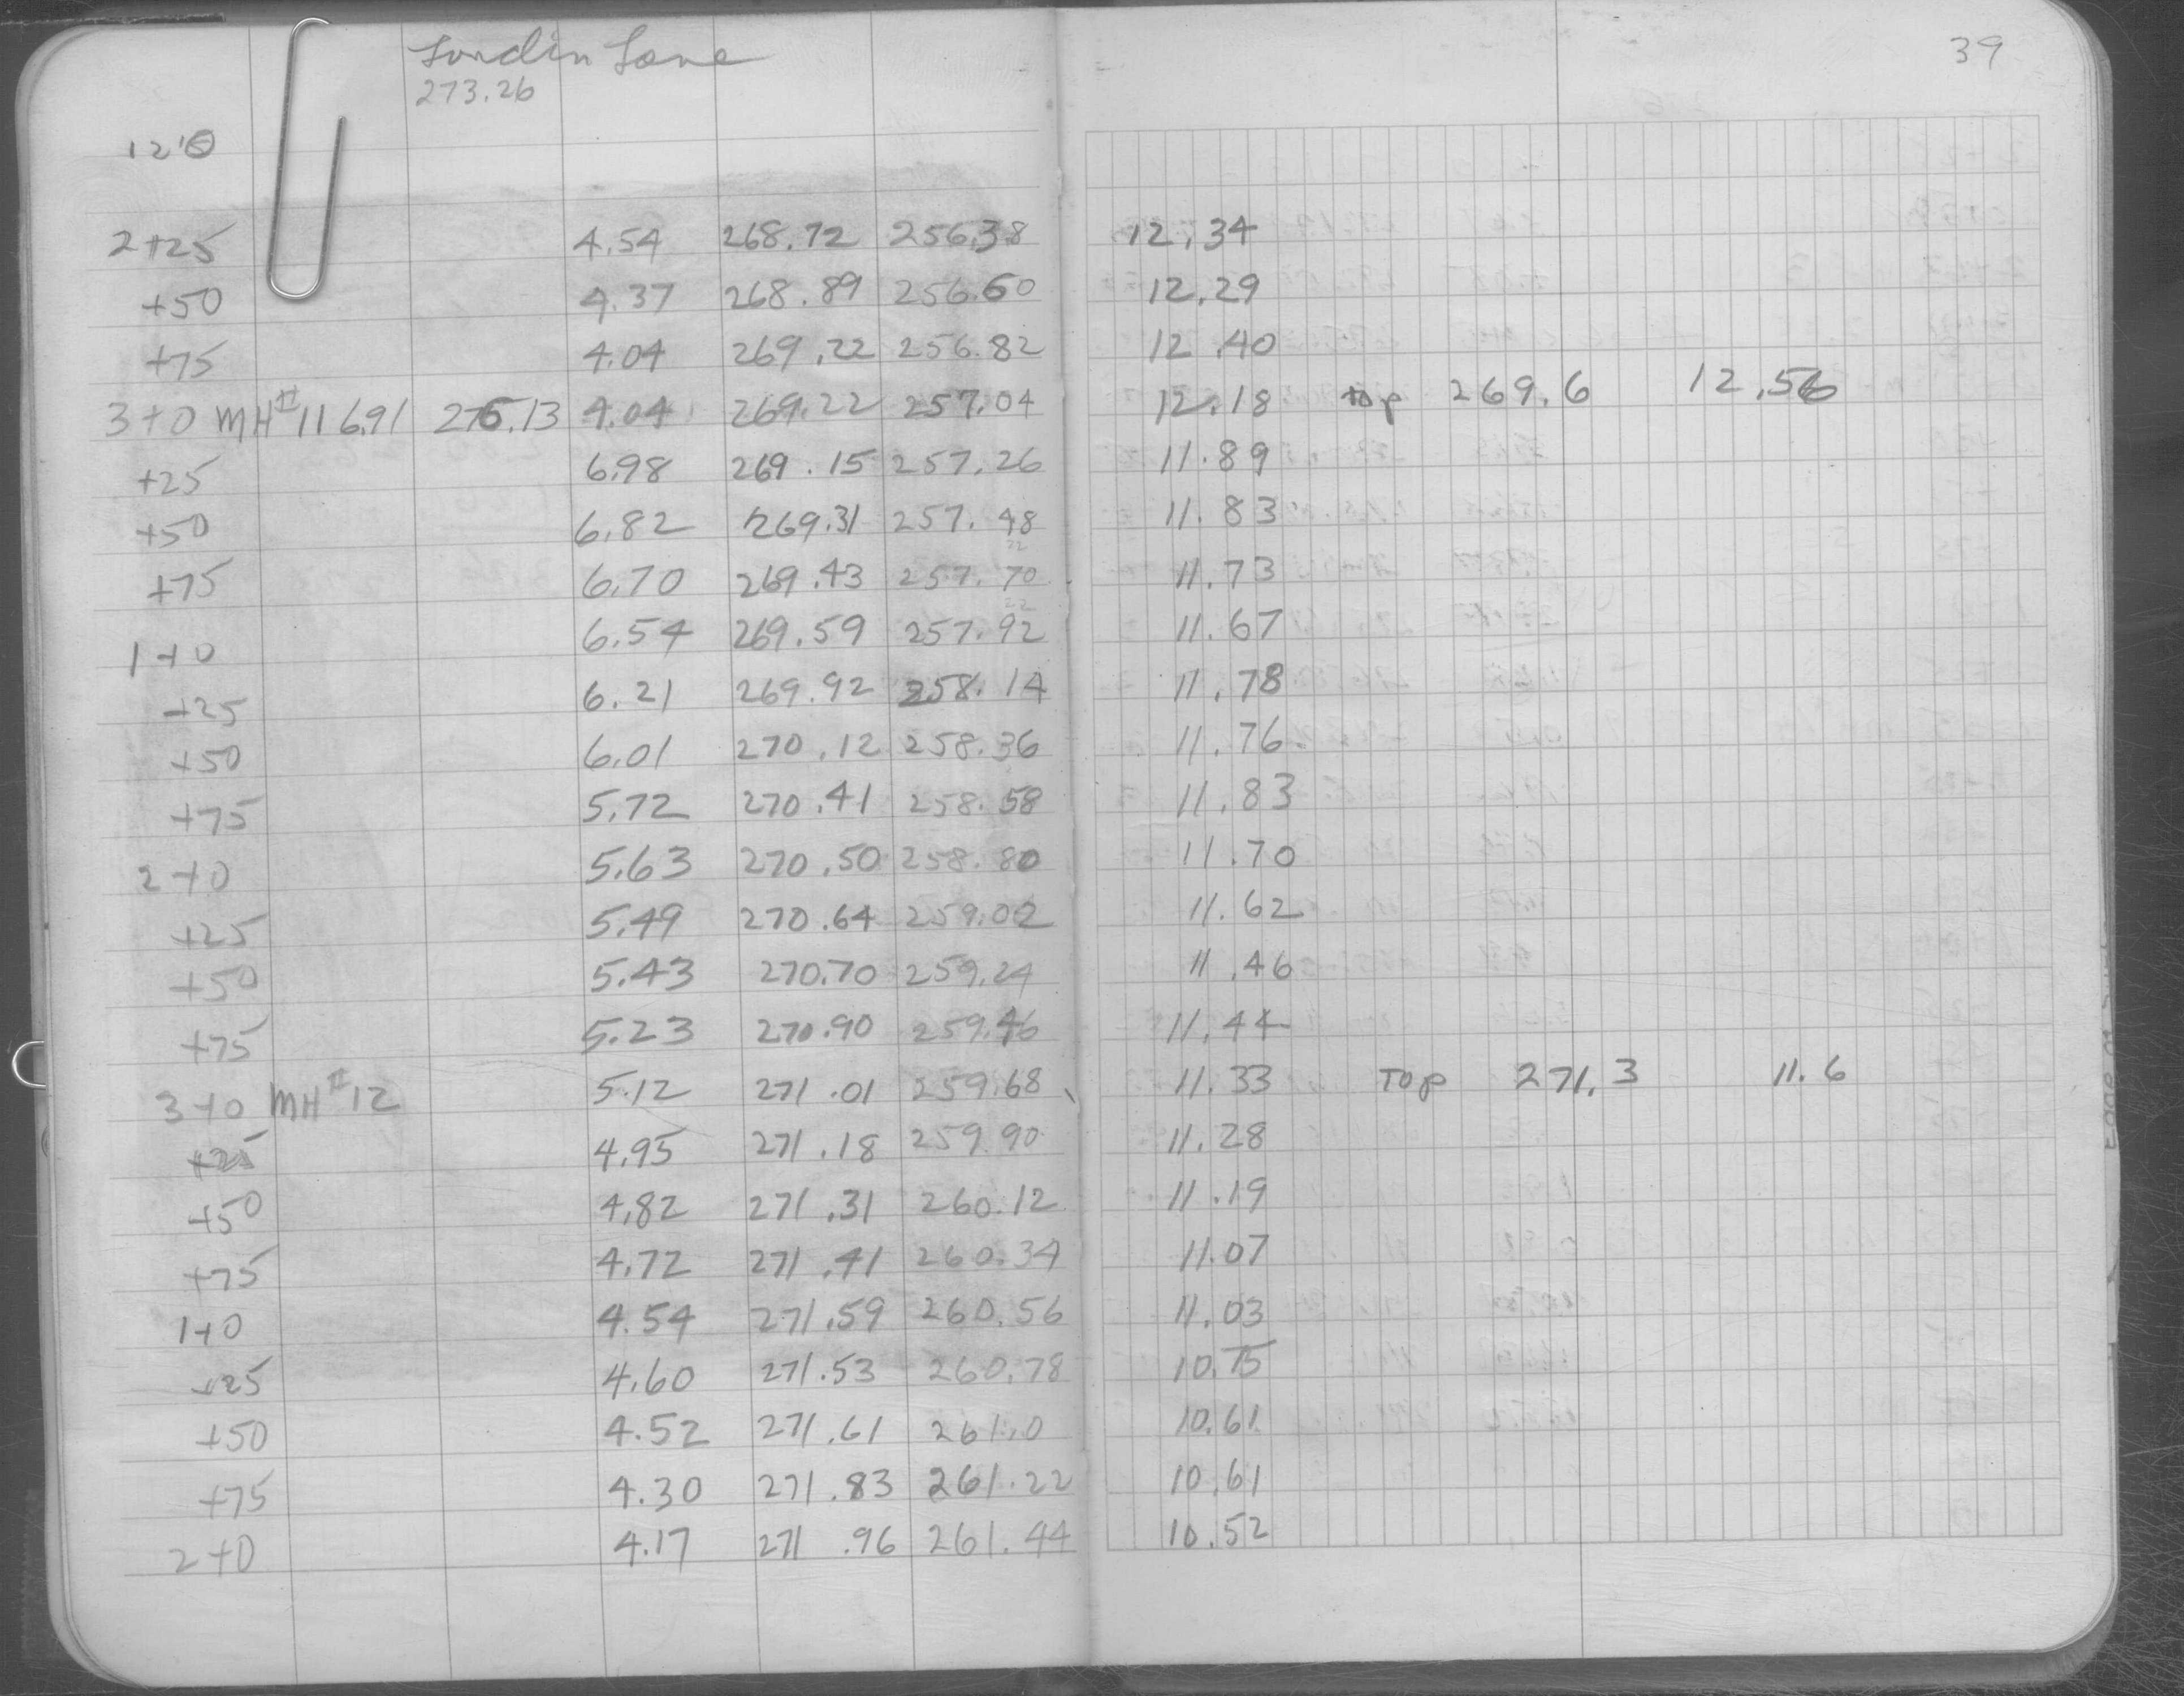 Lane
39
273.26
12'0
2+25 4.54 268.72 256.38 12.34
+50 4.37 268.89 256.60 12.29
+75 4.04 269.22 256.82 12.40
3+0 MH#11 6.91 276.13 4.04 269.22 257.04 12.18 top 269.6 12.56
+25 6.98 269.15 257.26 11.89
+50 6.82 269.31 257.48 11.83
22
+75 6.70 269.43 257.70 11.73
22
1+0 6.54 269.59 257.92 11.67
+25 6.21 269.92 258.14 11.78
+50 6.01 270.12 258.36 11.76
+75 5.72 270.41 258.58 11.83
2+0 5.63 270.50 258.80 11.70
+25 5.49 270.64 259.02 11.62
+50 5.43 270.70 259.24 11.46
+75 5.23 270.90 259.46 11.44
3+0 MH#12 5.12 271.01 259.68 11.33 Top 271.3 11.6
+25 4.95 271.18 259.90 11.28
+50 4.82 271.31 260.12 11.19
+75 4.72 271.41 260.34 11.07
1+0 4.54 271.59 260.56 11.03
+25 4.60 271.53 260.78 10.75
+50 4.52 271.61 261.0 10.61
+75 4.30 271.83 261.22 10.61
2+0 4.17 271.96 261.44 10.52